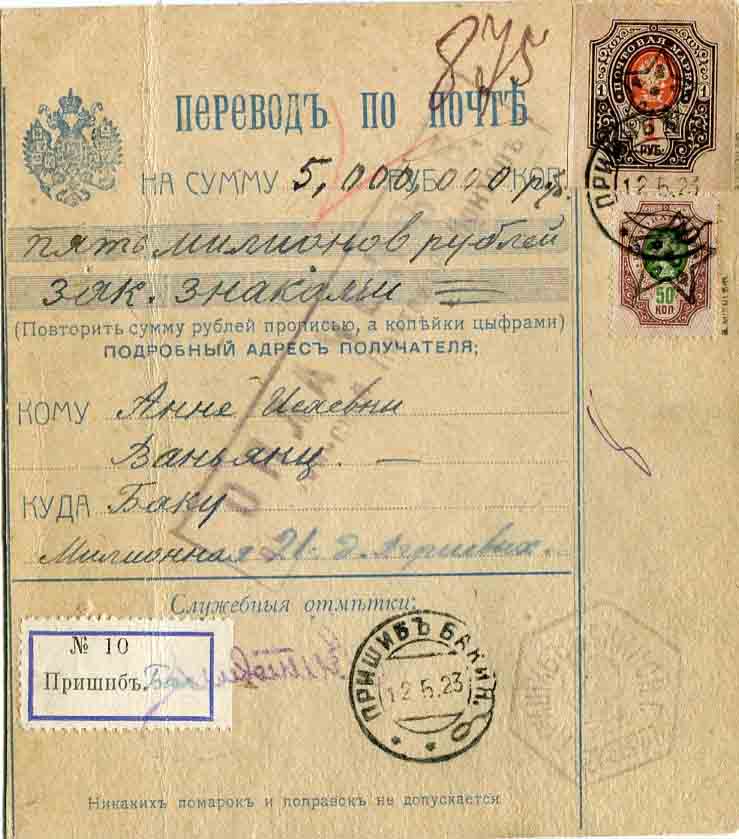 875
ПЕРЕВОДЪ ПО ПОЧТѢ
НА СУММУ 5,000,000 РУБ. КОП. руб.
пять милионов рублей
зак. знаками
(Повторить сумму рублей прописью, а копѣйки цыфрами)
ПОДРОБНЫЙ АДРЕСЪ ПОЛУЧАТЕЛЯ;
КОМУ Анне
Ваньянц. —
КУДА Баку
Милионная 21. д.
Служебныя отмѣтки:
№ 10
Пришибъ.
ПРИШИБЪ БАКИН.
12.5.23
Никакихъ помарок и поправок не допускается
ПОЧТОВАЯ МАРКА
1 1
РУБ.
ПРИШИБ
12.5.23
50
КОП